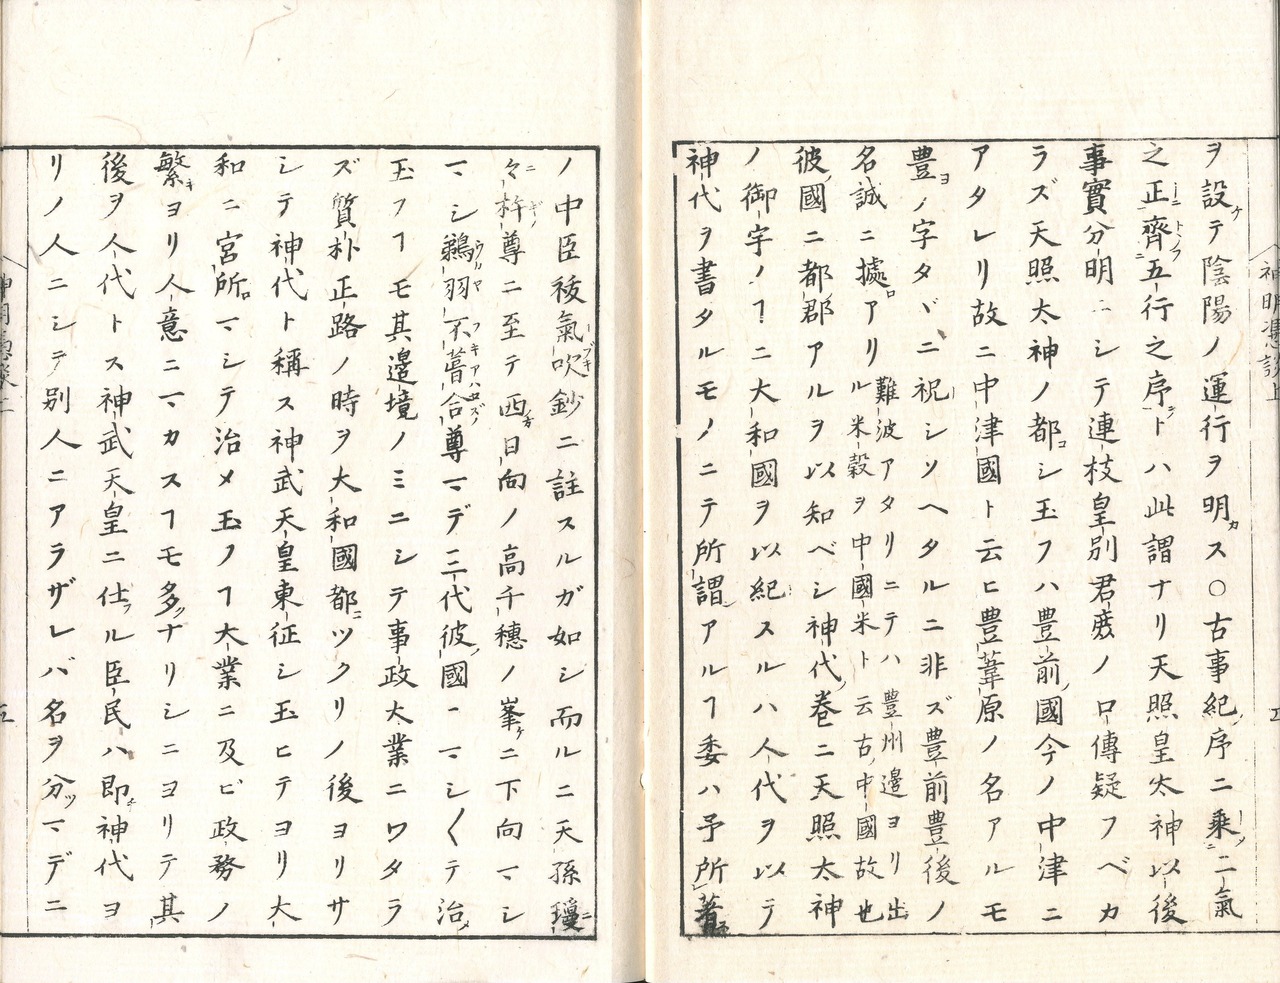 ヲ設ケテ陰陽ノ運行ヲ明カス○古事紀ノ序ニ乗二氣
之正齊五行之序トハ此謂ナリ天照皇太神以後
事實分明ニシテ連枝皇別君彧ノ口傳疑フベカ
ラズ天照太神ノ都コシ玉フハ豊前ノ國今ノ中津ニ
アタレリ故ニ中津國ト云ヒ豊葦原ノ名アルモ
豊ヨノ字タヾニ祝シソヘタルニ非ズ豊前豊後ノ
名誠ニ據ロアリ難波アタリニテハ豊州邊ヨリ出
ル米穀ヲ中國米ト云古ノ中國故也
彼ノ國ニ都郡アルヲ以知ベシ神代ノ巻ニ天照太神
ノ御宇ノヿニ大和國ヲ以紀スルハ人代ヲ以テ
神代ヲ書タルモノニテ所謂アルヿ委ハ予所著
ノ中臣祓氣吹鈔ニ註スルガ如シ而ルニ天孫瓊
々杵尊ニ至テ西方日向ノ高千穗ノ峯ケニ下向マシ
マシ鵜羽不葺合尊マデ三代彼ノ國ニマシ〱テ治メ
玉フヿモ其邊境ノミニシテ事政大業ニワタラ
ズ質朴正路ノ時ヲ大和國都ニツクリノ後ヨリサ
シテ神代ト稱ス神武天皇東征シ玉ヒテヨリ大
和ニ宮所ロマシテ治メ玉ノヿ大業ニ及ビ政務ノ
繁キヨリ人意ニマカスヿモ多ナリシニヨリテ其
後ヲ人代トス神武天皇ニ仕フル臣民ハ即チ神代ヨ
リノ人ニシテ別人ニアラザレバ名ヲ分ツマデニ